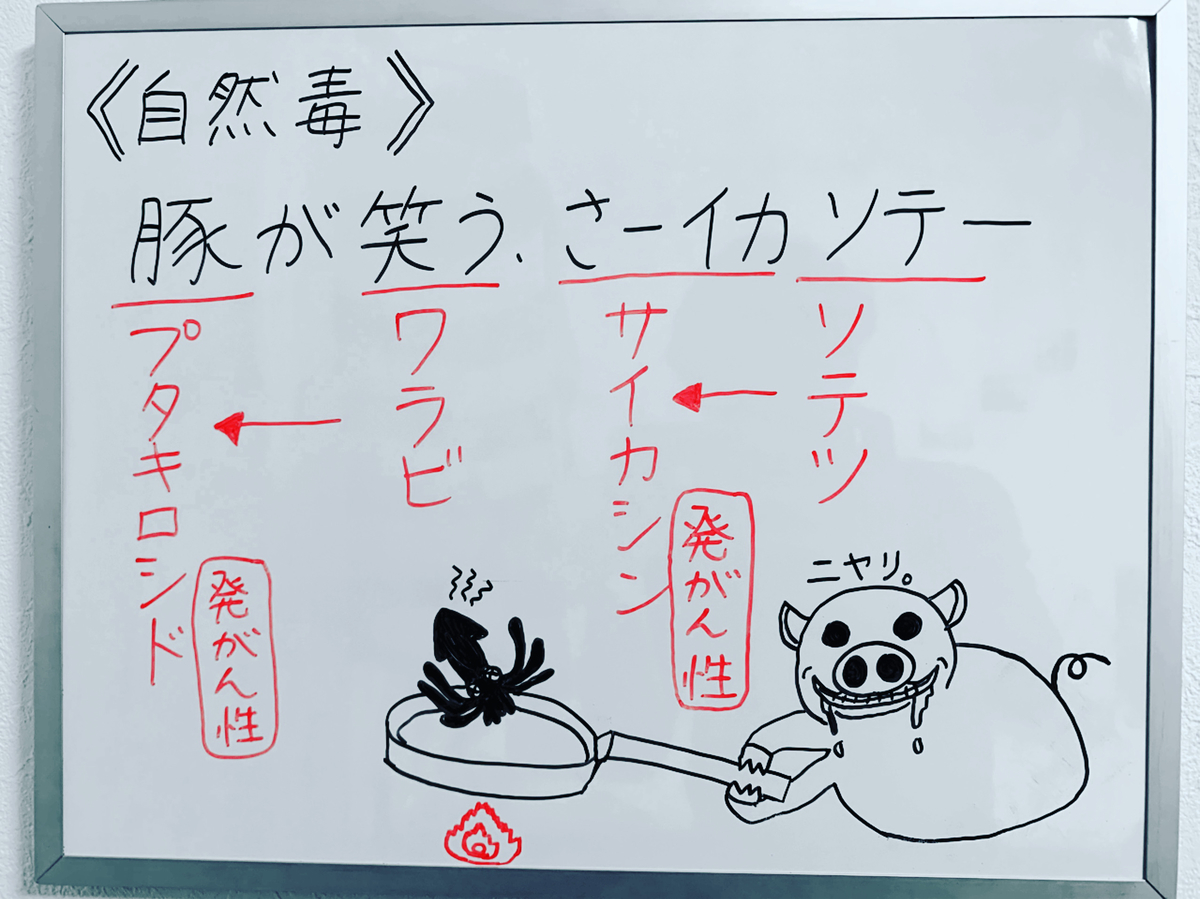 《自然毒》
豚が笑う、さーイカソテー
プタキロシド
ワラビ
サイカシン
ソテツ
発がん性
発がん性
ニヤリ。